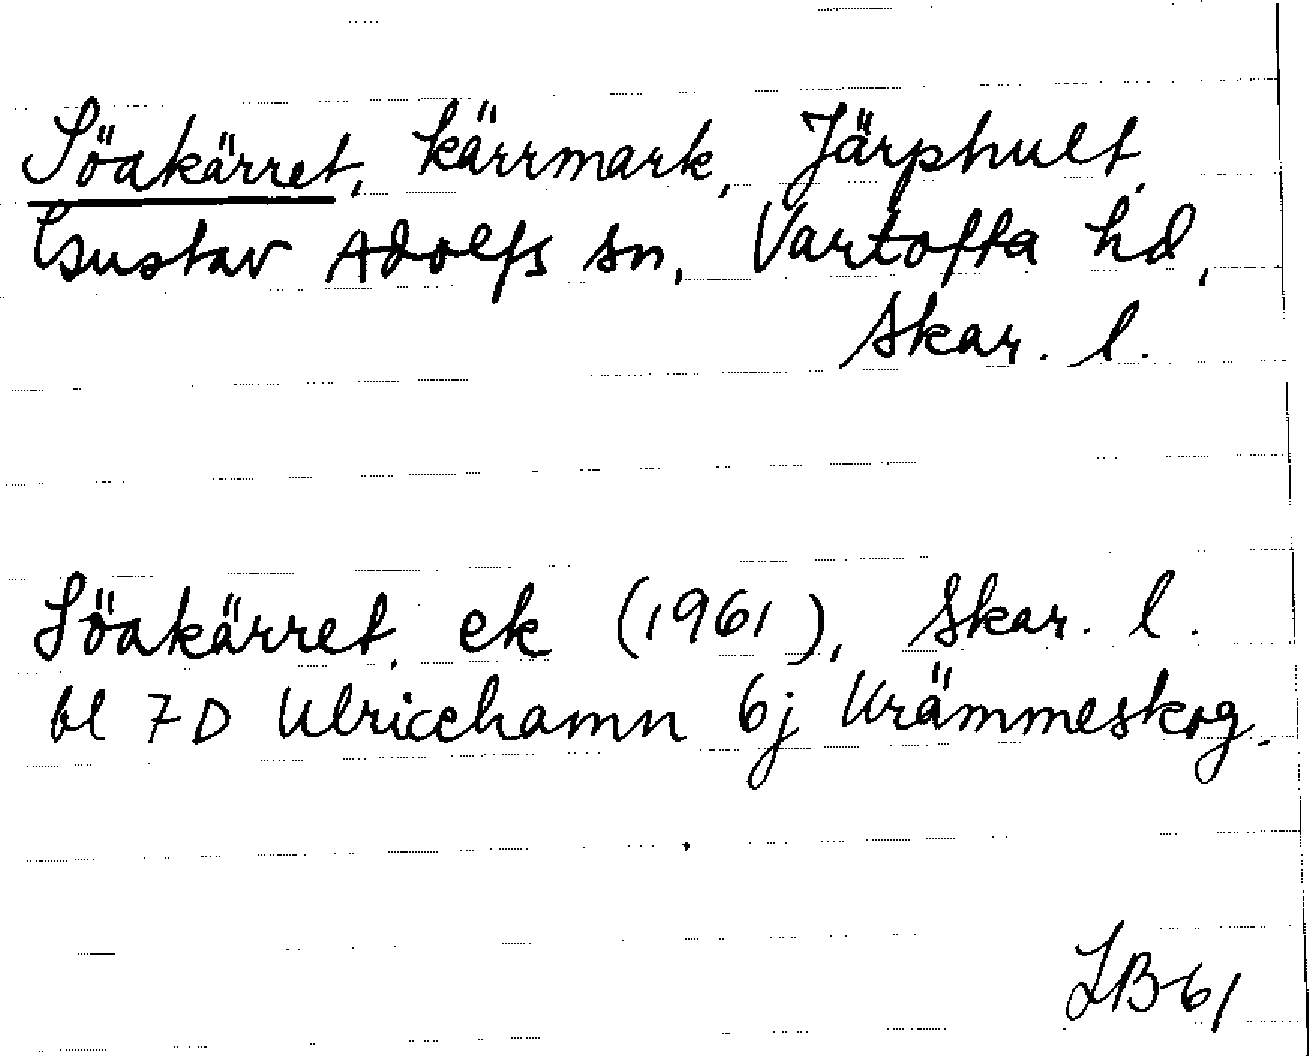 Söakärret, kärrmark, Järphult,
Gustav Adolfs sn, Vartofta hd,
Skar. l.
Söakärret, ek (1961), Skar. l.
bl 7 D Ulricehamn 6j Krämmeskog.
LB 61